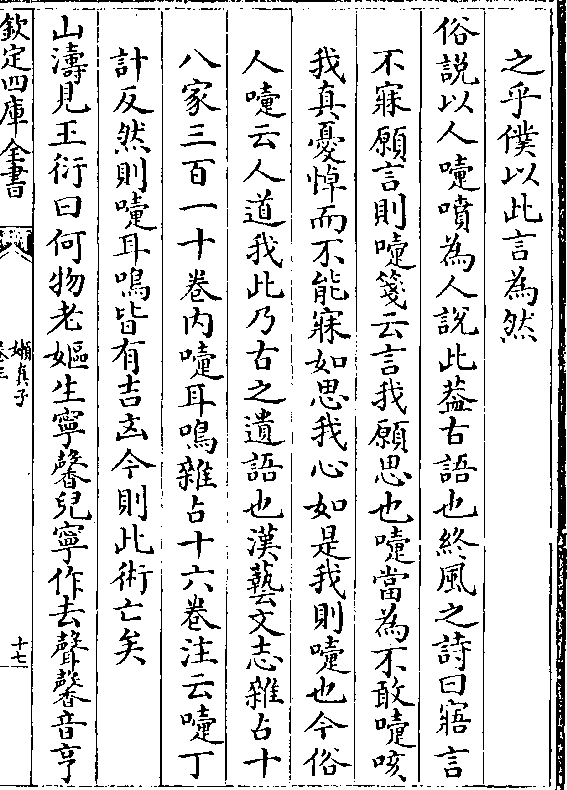 之乎僕以此言為然
俗說以人嚔噴為人說此蓋古語也終風之詩曰寤言
不寐願言則嚔箋云言我願思也嚔當為不敢嚔咳
我真憂悼而不能寐如思我心如是我則嚔也今俗
人嚔云人道我此乃古之遺語也漢藝文志雜占十
八家三百一十卷内嚔耳鳴雜占十六卷注云嚔丁
計反然則嚔耳鳴皆有吉凶今則此術亡矣
山濤見王衍曰何物老嫗生寧馨兒寧作去聲馨音亨
欽定四庫全書
嬾真子
卷三
十七